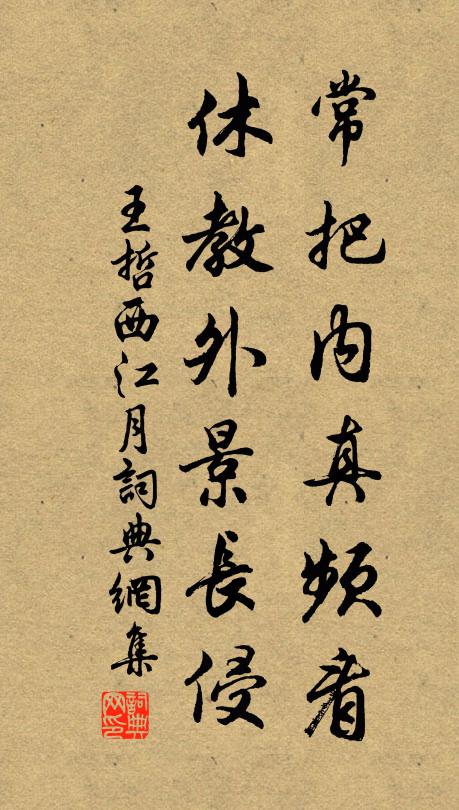 常把内真頻看
休教外景長侵
王哲西江月詞典網集
詞典網印